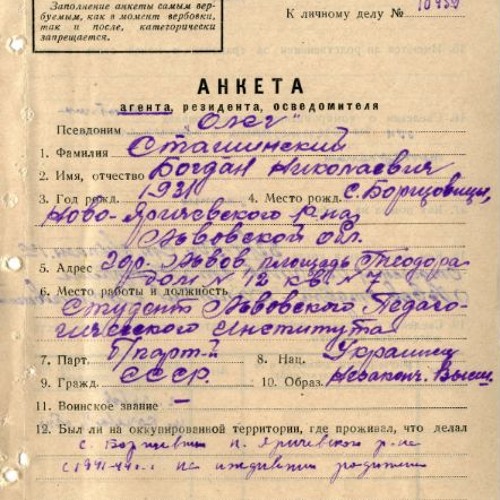 Заполнение анкеты самым вер-
буемым, как в момент вербовки,
так и после, категорически
запрещается.
К личному делу №
АНКЕТА
агента, резидента, осведомителя
Псевдоним „Олег“
1. Фамилия Сташинский
2. Имя, отчество Богдан Николаевич
3. Год рожд. 1931 4. Место рожд. с. Борщовицы,
Ново-Яричевского р-на
Львовской обл.
5. Адрес гор. Львов площадь Теодора
дом № 12 кв. № 7
6. Место работы и должность
Студент Львовского Педаго-
гического института
7. Парт. б/парт-й 8. Нац. Украинец
9. Гражд. СССР. 10. Образ. Незаконч. Высш.
11. Воинское звание —
12. Был ли на оккупированной территории, где проживал, что делал
с. Борщевичи н. Яричевской р-на
с 1941-44 г. на иждивении родителей